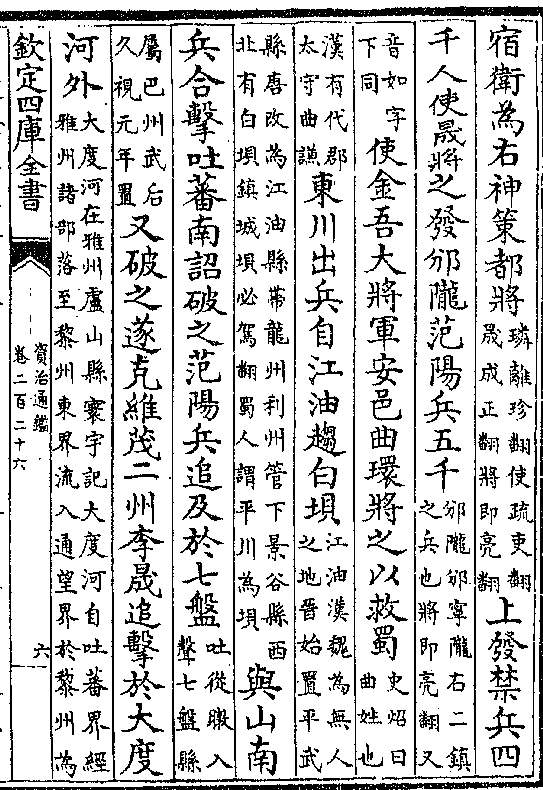 宿衛為右神策都將璘離珍翻使疏吏翻晟成正翻將即亮翻上發禁兵四
千人使晟將之發邠隴范陽兵五千邠隴邠寧隴右二鎮之兵也將即亮翻又
音如字下同使金吾大將軍安邑曲環將之以救蜀史炤曰曲姓也
漢有代郡太守曲謙東川出兵自江油趨白垻江油漢魏為無人之地晉始置平武
縣唐改為江油縣帶龍州利州管下景谷縣西北有白垻鎮城垻必駕翻蜀人謂平川為垻與山南
兵合擊吐蕃南詔破之范陽兵追及於七盤吐從暾入聲七盤縣
屬巴州武后久視元年置又破之遂克維茂二州李晟追擊於大度
河外大度河在雅州盧山縣寰宇記大度河自吐蕃界經雅州諸部落至黎州東界流入通望界於黎州為
欽定四庫全書
資治通鑑
卷二百二十六
六